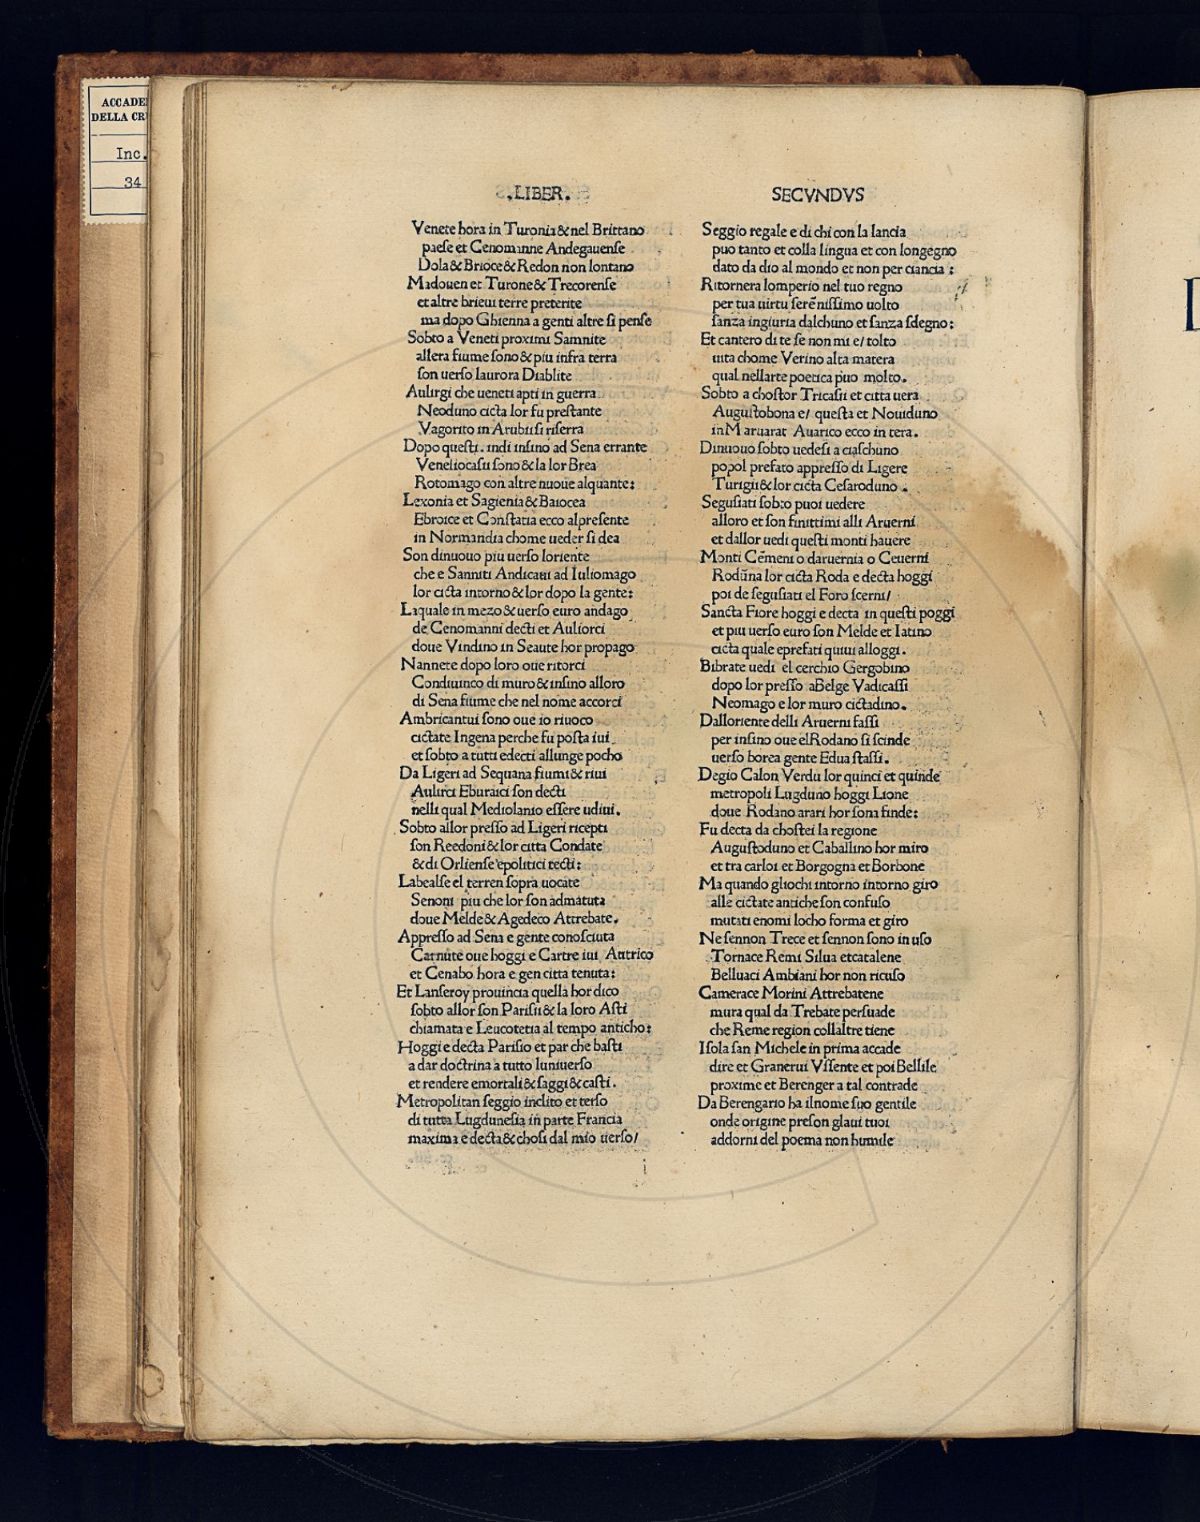 ACCADE
DELLA CR
Inc.
34
.LIBER.
Venete hora in Turonia & nel Brittano
paese et Cenomanne Andegauense
Dola & Brioce & Redon non lontano
Madouen et Turone & Trecorense
et altre brieui terre preterite
ma dopo Ghienna a genti altre si pense
Sobto a Veneti proximi Samnite
allera fiume sono & piu infra terra
son uerso laurora Diablite
Aulirgi che ueneti apti in guerra
Neoduno cicta lor fu prestante
Vagorito in Arubii si riserra
Dopo questi. indi insino ad Sena errante
Veneliocasii sono & la lor Brea
Rotomago con altre nuoue alquante:
Lexonia et Sagienia & Baiocea
Ebroice et Constatia ecco alpresente
in Normandia chome ueder si dea
Son dinuouo piu uerso loriente
che e Sanniti Andicaui ad Iuliomago
lor cicta intorno & lor dopo la gente:
Laquale in mezo & uerso euro andago
de Cenomanni decti et Auliorci
doue Vindino in Seaute hor propago
Nannete dopo loro oue ritorci
Condiuinco di muro & insino alloro
di Sena fiume che nel nome accorci
Ambricantui sono oue io riuoco
cictate Ingena perche fu posta iui
et sobto a tutti edecti allunge pocho
Da Ligeri ad Sequana fiumi & riui
Aulirci Eburaici son decti
nelli qual Mediolanio essere udiui.
Sobto allor presso ad Ligeri ricepti
son Reedoni & lor citta Condate
& di Orliense epolitici tecti:
Labealse el terren sopra uocate
Senoni piu che lor son admatuta
doue Melde & Agedeco Attrebate.
Appresso ad Sena e gente conosciuta
Carnute oue hoggi e Cartre iui Autrico
et Cenabo hora e gen citta tenuta:
Et Lanseroy prouincia quella hor dico
sobto allor son Parisii & la loro Asti
chiamata e Leucotetia al tempo anticho:
Hoggi e decta Parisio et par che basti
a dar doctrina a tutto luniuerso
et rendere emortali & saggi & casti.
Metropolitan seggio inclito et terso
di tutta Lugdunesia in parte Francia
maxima e decta & chosi dal mio uerso/
i
SECVNDVS
Seggio regale e di chi con la lancia
puo tanto et colla lingua et con longegno
dato da dio al mondo et non per ciancia:
Ritornera lomperio nel tuo regno
per tua uirtu serēnissimo uolto
sanza ingiuria dalchuno et sanza sdegno:
Et cantero di te se non mi e/ tolto
uita chome Verino alta matera
qual nellarte poetica puo molto.
Sobto a chostor Tricasii et citta uera
Augustobona e/ questa et Nouiduno
in Maruarat Auarico ecco in tera.
Dinuouo sobto uedesi a ciaschuno
popol prefato appresso di Ligere
Turigii & lor cicta Cesaroduno.
Segusiati sobto puoi uedere
alloro et son finittimi alli Aruerni
et dallor uedi questi monti hauere
Monti Cēmeni o daruernia o Ceuerni
Rodūna lor cicta Roda e decta hoggi
poi de segusiati el Foro scerni/
Sancta Fiore hoggi e decta in questi poggi
et piu uerso euro son Melde et Iatino
cicta quale eprefati quiui alloggi.
Bibrate uedi el cerchio Gergobino
dopo lor presso aBelge Vadicassi
Neomago e lor muro cictadino.
Dalloriente delli Aruerni fassi
per insino oue el Rodano si scinde
uerso borea gente Edua stassi.
Degio Calon Verdu lor quinci et quinde
metropoli Lugduno hoggi Lione
doue Rodano arari hor sona finde:
Fu decta da chostei la regione
Augustoduno et Caballino hor miro
et tra carloi et Borgogna et Borbone
Ma quando gliochi intorno intorno giro
alle cictate antiche son confuso
mutati enomi locho forma et giro
Ne sennon Trece et sennon sono in uso
Tornace Remi Silua etcatalene
Belluaci Ambiani hor non ricuso
Camerace Morini Attrebatene
mura qual da Trebate persuade
che Reme region collaltre tiene
Isola san Michele in prima accade
dire et Granerui Vssente et poi Bellile
proxime et Berenger a tal contrade
Da Berengario ha ilnome suo gentile
onde origine preson glaui tuoi
addorni del poema non humile